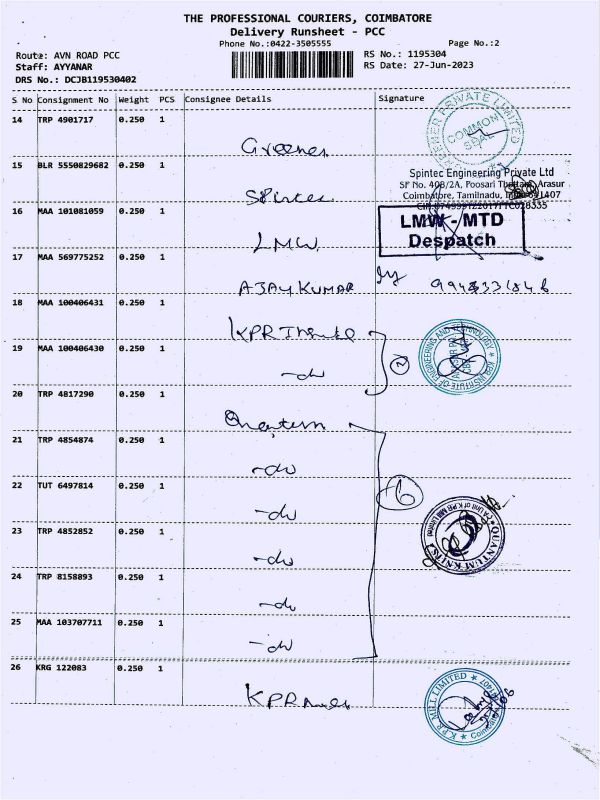 THE PROFESSIONAL COURIERS, COIMBATORE
Delivery Runsheet - PCC
Phone No.:0422-3505555
Page No.:2
Route: AVN ROAD PCC
RS No.: 1195304
Staff: AYYANAR
RS Date: 27-Jun-2023
DRS No.: DCJB119530402
S No Consignment No Weight PCS Consignee Details Signature
14 TRP 4901717 0.250 1
PRIVATE LIMITED
COMMON SEAL
Greenes
15 BLR 5550829682 0.250 1
Spintec Engineering Private Ltd
SF No. 408/2A, Poosari Thottam, Arasur
Coimbatore, Tamilnadu, India 641407
Spintec
16 MAA 101081059 0.250 1
LMW - MTD
Despatch
LMW
17 MAA 569775252 0.250 1
AJAY KUMAR
18 MAA 100406431 0.250 1
KPR Institute
KPR INSTITUTE OF ENGINEERING AND TECHNOLOGY
19 MAA 100406430 0.250 1
2
-do
20 TRP 4817290 0.250 1
Quantum
21 TRP 4854874 0.250 1
-do
22 TUT 6497814 0.250 1
6
-do
23 TRP 4852852 0.250 1
QUANTUM KNITS
(A Unit of K.P.R Mill Limited)
-do
24 TRP 8158893 0.250 1
-do
25 MAA 103707711 0.250 1
-do
26 KRG 122083 0.250 1
K.P.R. MILL LIMITED
KPR Mill